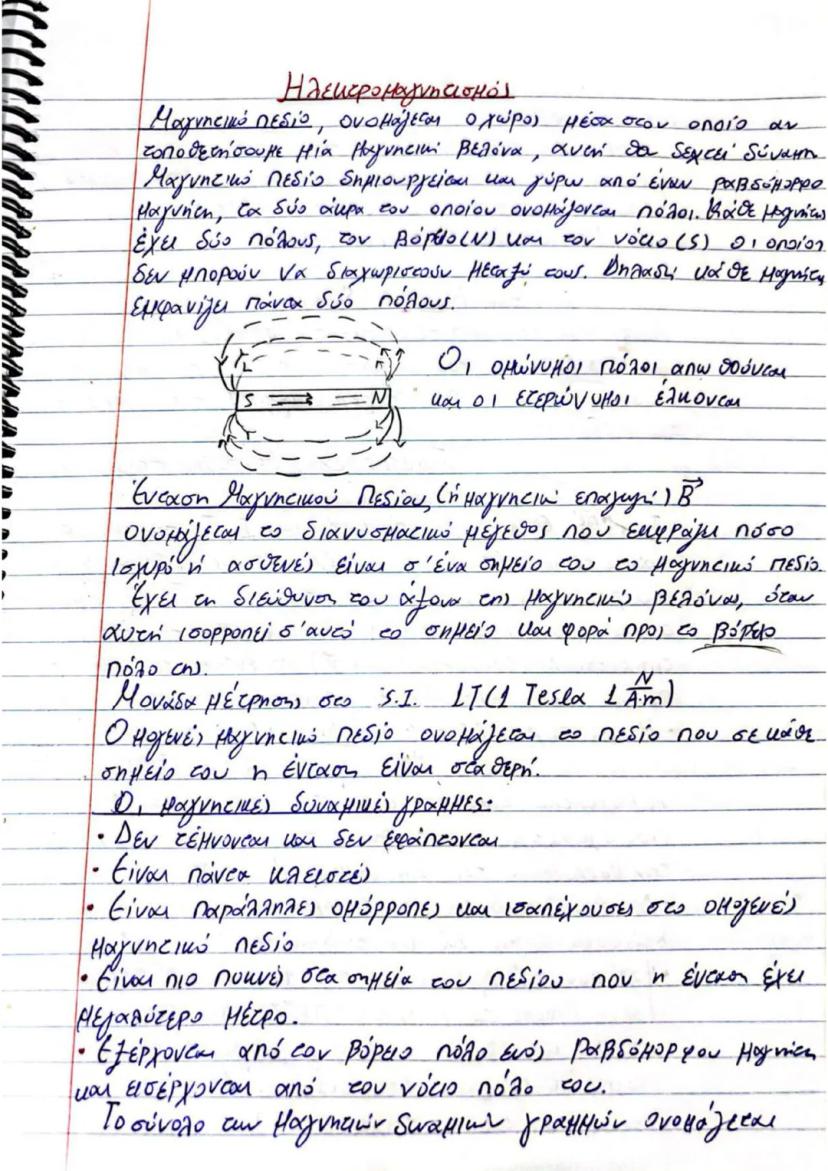 Ηλεκτρομαγνητισμός
Μαγνητικό πεδίο, ονομάζεται ο χώρος μέσα στον οποίο αν
τοποθετήσουμε μία μαγνητική βελόνα, αυτή θα δεχτεί δύναμη
Μαγνητικό πεδίο δημιουργείται και γύρω από έναν ραβδόμορφο
μαγνήτη, τα δύο άκρα του οποίου ονομάζονται πόλοι. Κάθε μαγνήτης
έχει δύο πόλους, τον βόρειο (N) και τον νότιο (S) οι οποίοι
δεν μπορούν να διαχωριστούν μεταξύ τους. Δηλαδή κάθε μαγνήτης
εμφανίζει πάντα δύο πόλους.
Οι ομώνυμοι πόλοι απωθούνται
S N και οι ετερώνυμοι έλκονται
Ένταση Μαγνητικού Πεδίου, (ή μαγνητική επαγωγή) B⃗
ονομάζεται το διανυσματικό μέγεθος που εκφράζει πόσο
ισχυρό ή ασθενές είναι σ'ένα σημείο του το μαγνητικό πεδίο.
Έχει τη διεύθυνση του άξονα της μαγνητικής βελόνας, όταν
αυτή ισορροπεί σ'αυτό το σημείο και φορά προς το βόρειο
πόλο της.
Μονάδα μέτρησης στο S.I. 1T (1 Tesla 1 N/A.m)
Ομογενές μαγνητικό πεδίο ονομάζεται το πεδίο που σε κάθε
σημείο του η ένταση είναι σταθερή.
Οι μαγνητικές δυναμικές γραμμες:
• Δεν τέμνονται και δεν εφάπτονται
• Είναι πάντα κλειστές
• Είναι παράλληλες ομόρροπες και ισαπέχουσες στο ομογενές
μαγνητικό πεδίο
• Είναι πιο πυκνές στα σημεία του πεδίου που η ένταση έχει
μεγαλύτερο μέτρο.
• Εξέρχονται από τον βόρειο πόλο ενός ραβδόμορφου μαγνήτη
και εισέρχονται από τον νότιο πόλο του.
Το σύνολο των μαγνητικών δυναμικών γραμμών ονομάζεται